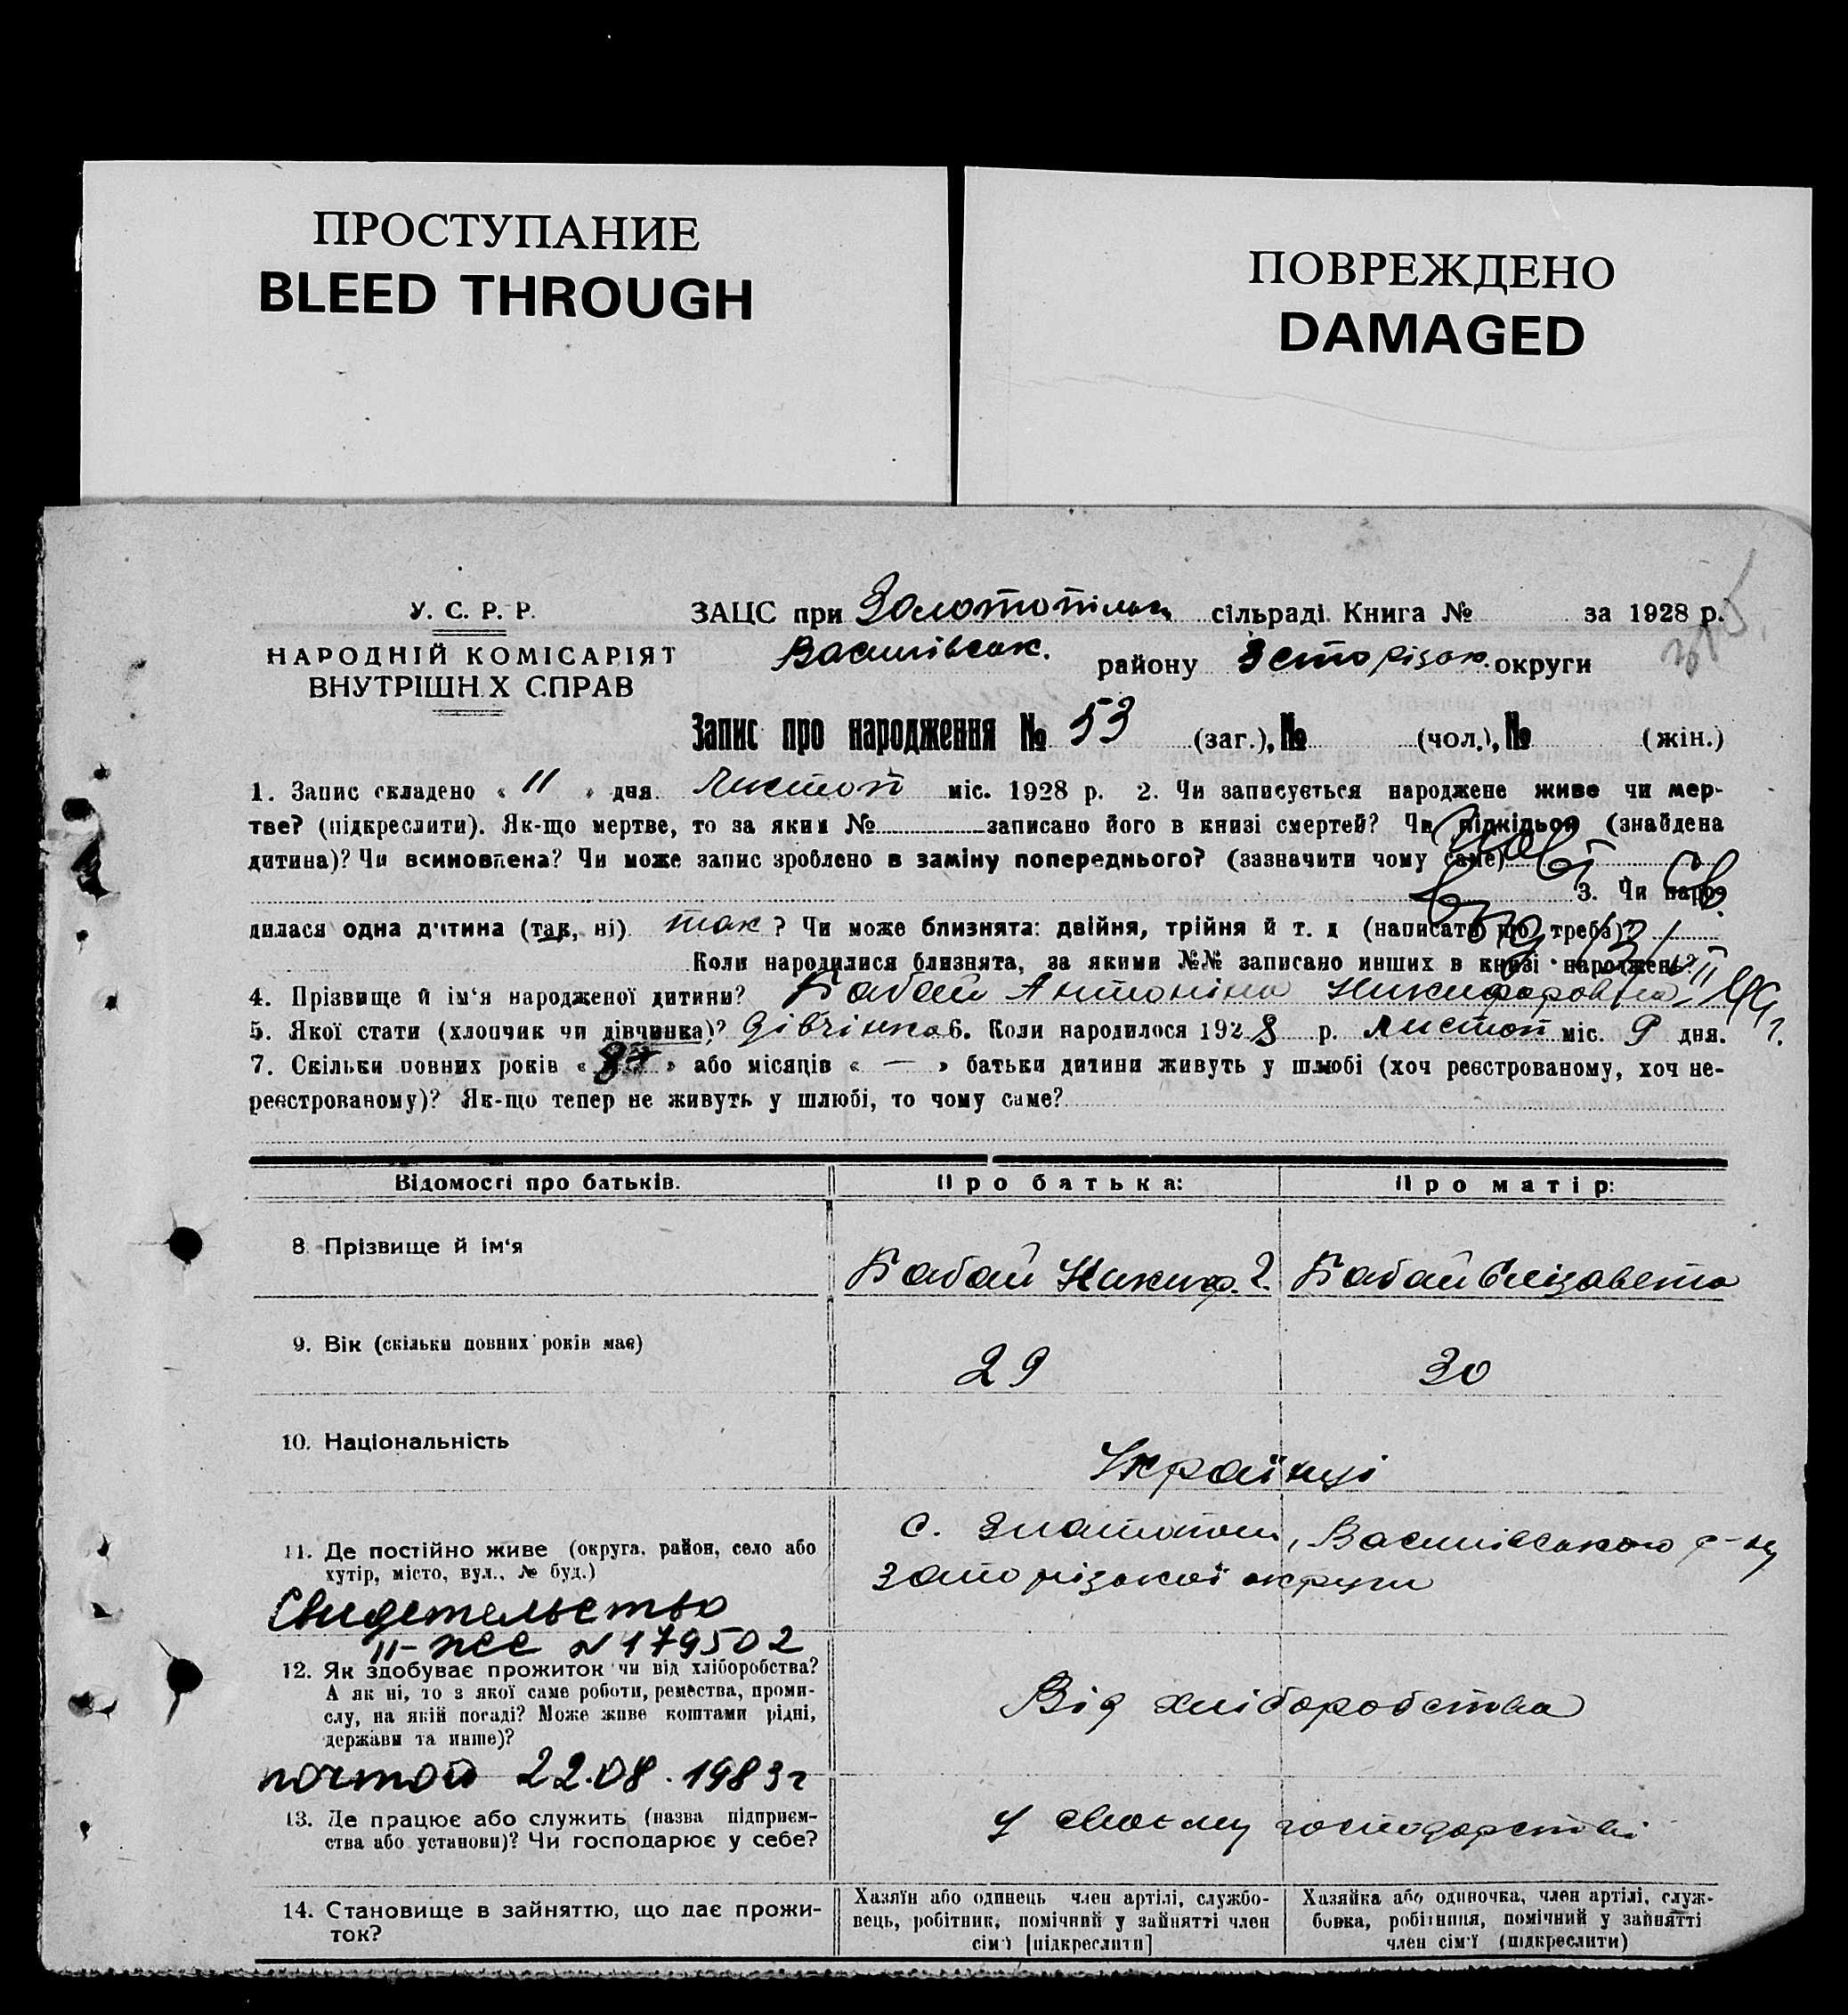 ПРОСТУПАНИЕ
BLEED THROUGH
ПОВРЕЖДЕНО
DAMAGED
У. С. Р. Р.
НАРОДНІЙ КОМІСАРІЯТ
ВНУТРІШН.Х СПРАВ
ЗАЦС при сільраді Книга № за 1928 р.
Василівськ. району округи
Запис про народження № 53 (заг.), № (чол.), № (жін.)
1. Запис складено « 11 » дня Листоп міс. 1928 р. 2. Чи записується народжене живе чи мер-
тве? (підкреслити). Як-що мертве, то за яким № записано його в книзі смертей? Чи підкідьок (знайдена
дитина)? Чи всиновлена? Чи може запис зроблено в заміну попереднього? (зазначити чому саме)
3. Чи наро-
дилася одна дитина (так, ні) так ? Чи може близнята: двійня, трійня й т. д (написати що треба)?
Коли народилися близнята, за якими №№ записано инших в книзі народжень?
4. Прізвище й ім‘я народженої дитини? Бабай Антоніна Никифоровна
5. Якої стати (хлопчик чи дівчинка)? Дівчінка 6. Коли народилося 1928 р. Листоп міс. 9 дня.
7. Скільки повних років « » або місяців « — » батьки дитини живуть у шлюбі (хоч реєстрованому, хоч не-
реєстрованому)? Як-що тепер не живуть у шлюбі, то чому саме?
Відомості про батьків. Про батька: Про матір:
8. Прізвище й ім‘я
Бабай Никиф. Г. Бабай Єлізавета
9. Вік (скільки повних років має)
29 30
10. Національність
Українці
11. Де постійно живе (округа, район, село або
хутір, місто, вул., № буд.)
с. Василівського р-ну
Запорізької округи
Свидетельство
II-ЖС № 179502
12. Як здобуває прожиток чи від хліборобства?
А як ні, то з якої саме роботи, ремества, проми-
слу, на якій посаді? Може живе коштами рідні,
держави та инше)?
Від хліборобства
почтой 22.08.1983г
13. Де працює або служить (назва підприєм-
ства або установи)? Чи господарює у себе?
У своєму господарстві
14. Становище в зайняттю, що дає прожи-
ток?
Хазяїн або одинець член артілі, службо-
вець, робітник, помічний у зайнятті член
сім‘ї [підкреслити]
Хазяйка або одиночка, член артілі, служ-
бовка, робітниця, помічний у зайнятті
член сім‘ї (підкреслити)